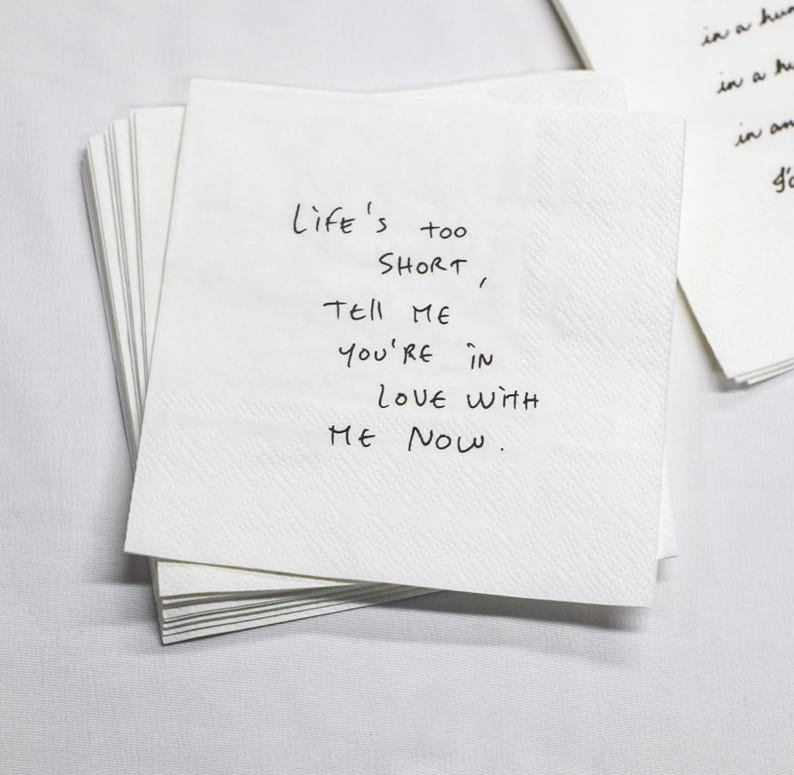 LiFE'S TOO
SHORT,
TEll ME
YOU'RE iN
LOVE WiTH
ME NOW.
in a
in a
in